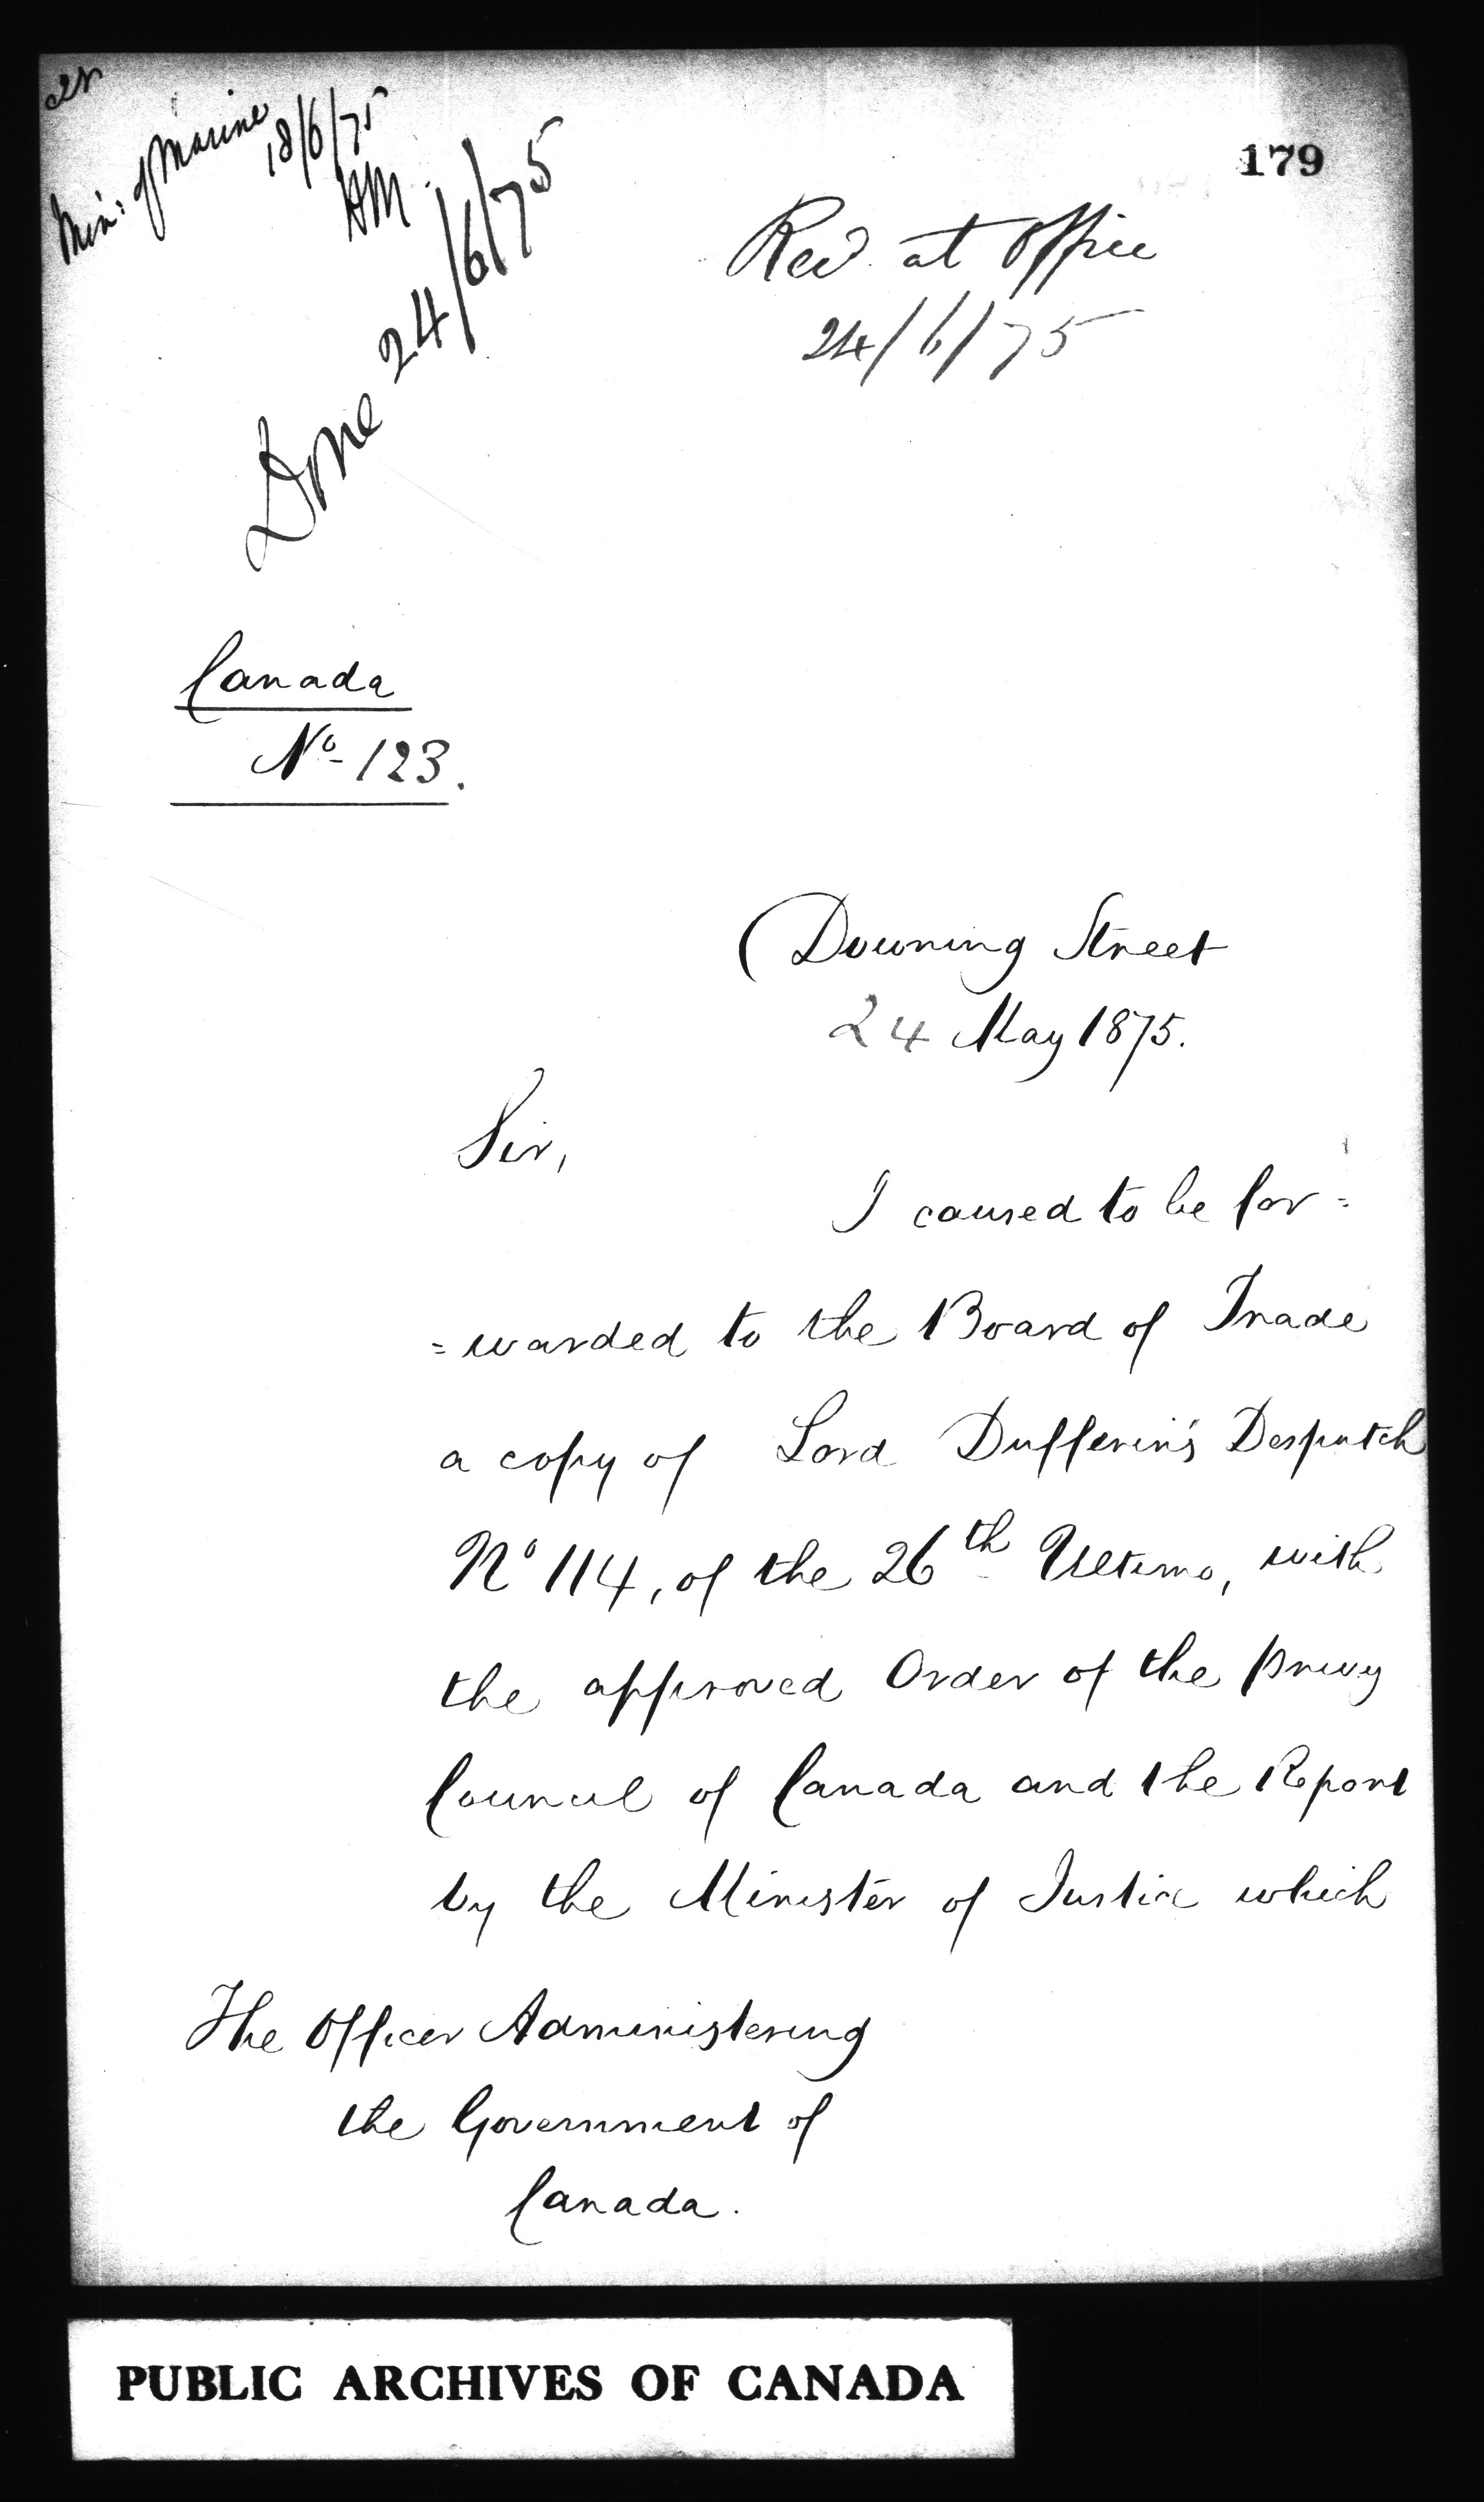 179
Min: of Marine
18/6/75
HM.
Done 24/6/75
Recd. at Office
24/6/75
Canada
No 123.
Downing Street
24 May 1875.
Sir,
I caused to be for=
=warded to the Board of Trade
a copy of Lord Dufferin's Despatch
No 114, of the 26th Ultimo, with
the approved Order of the Privy
Council of Canada and the Report
by the Minister of Justice which
The Officer Administering
the Government of
Canada.
PUBLIC ARCHIVES OF CANADA